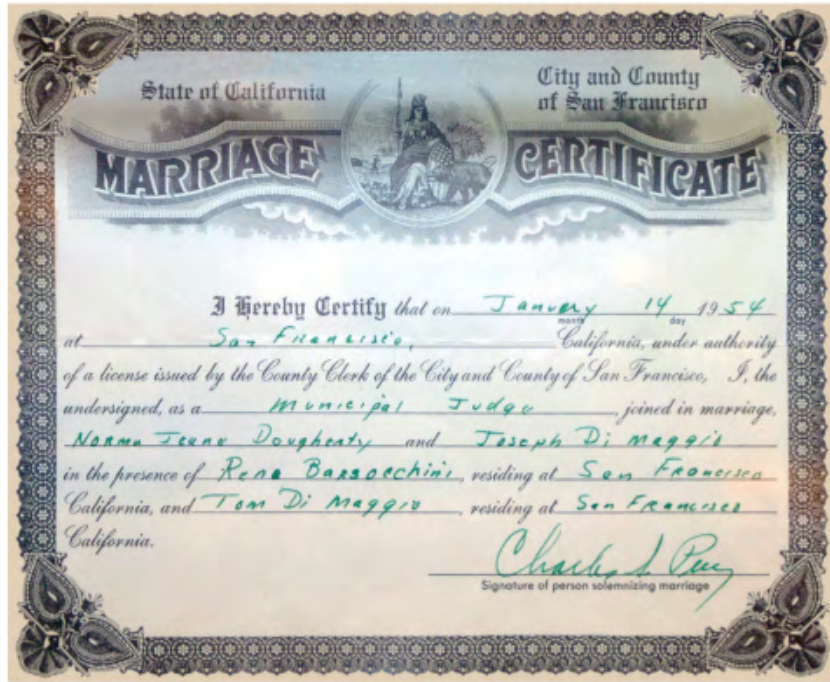 State of California
City and County
of San Francisco
MARRIAGE CERTIFICATE
I Hereby Certify that on January 14 1954
month day
at San Francisco, California, under authority
of a license issued by the County Clerk of the City and County of San Francisco, I, the
undersigned, as a Municipal Judge, joined in marriage,
Norma Jeane Dougherty and Joseph Di Maggio
in the presence of Reno Barsocchini, residing at San Francisco
California, and Tom Di Maggio, residing at San Francisco
California.
Charles S. Perry
Signature of person solemnizing marriage